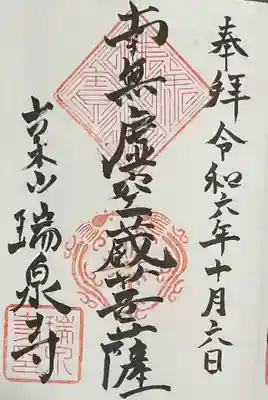 奉拝 令和六年十月六日
南無虚空蔵菩薩
瑞泉寺